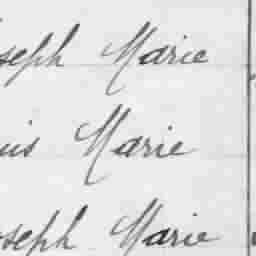 oseph Marie
uis Marie
oseph Marie